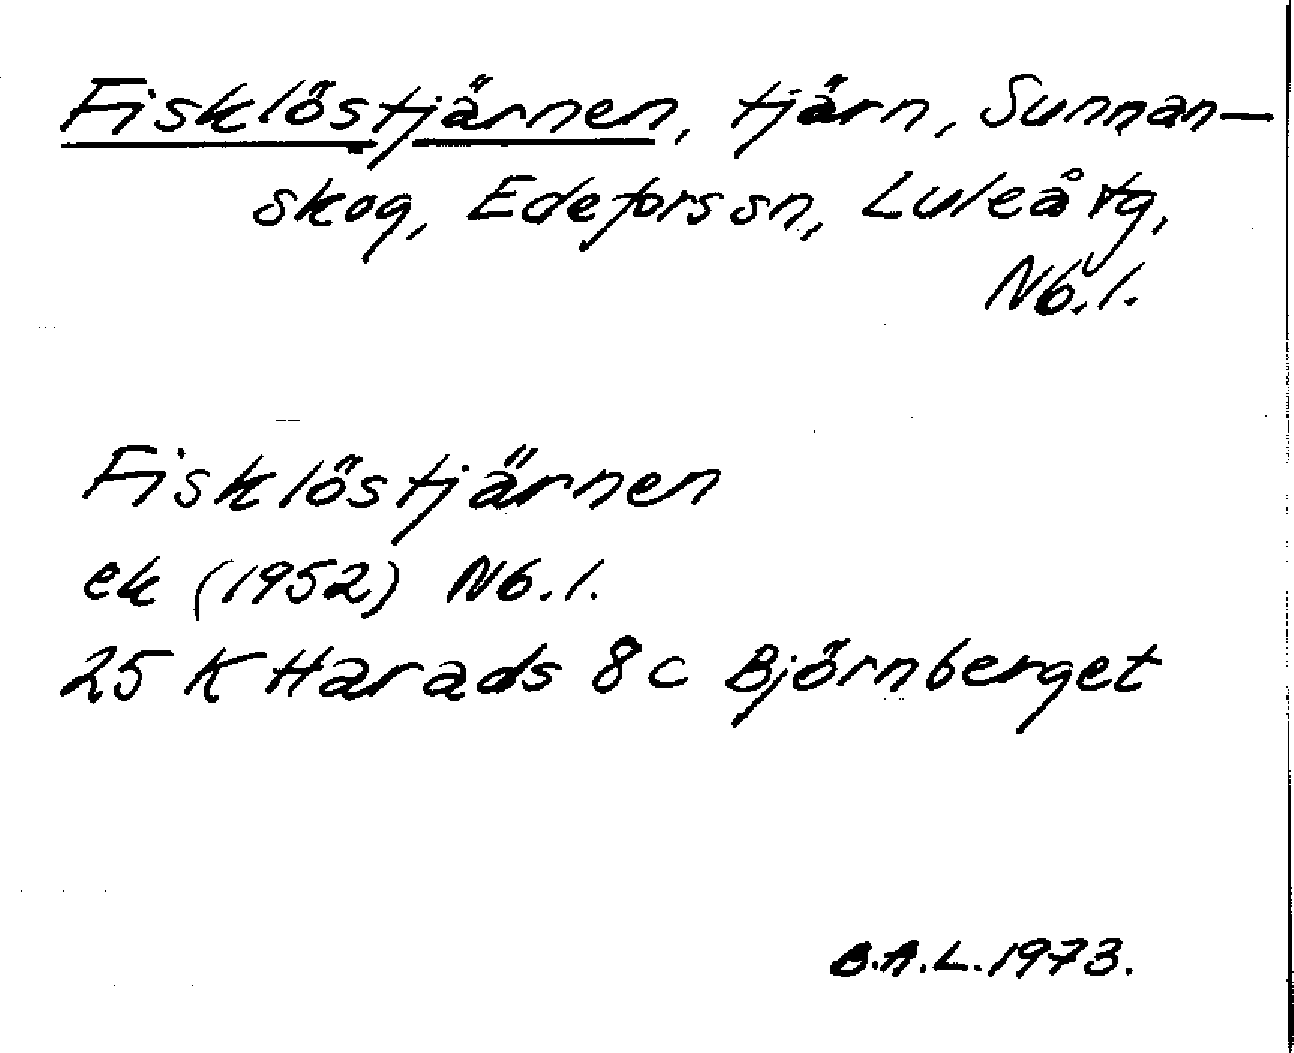 Fisklöstjärnen, tjärn, Sunnan-
skog, Edeforssn, Luleå tg,
Nb.l.
Fisklöstjärnen
ek (1952) Nb.l.
25 K Harads 8c Björnberget
B.A.L. 1973.